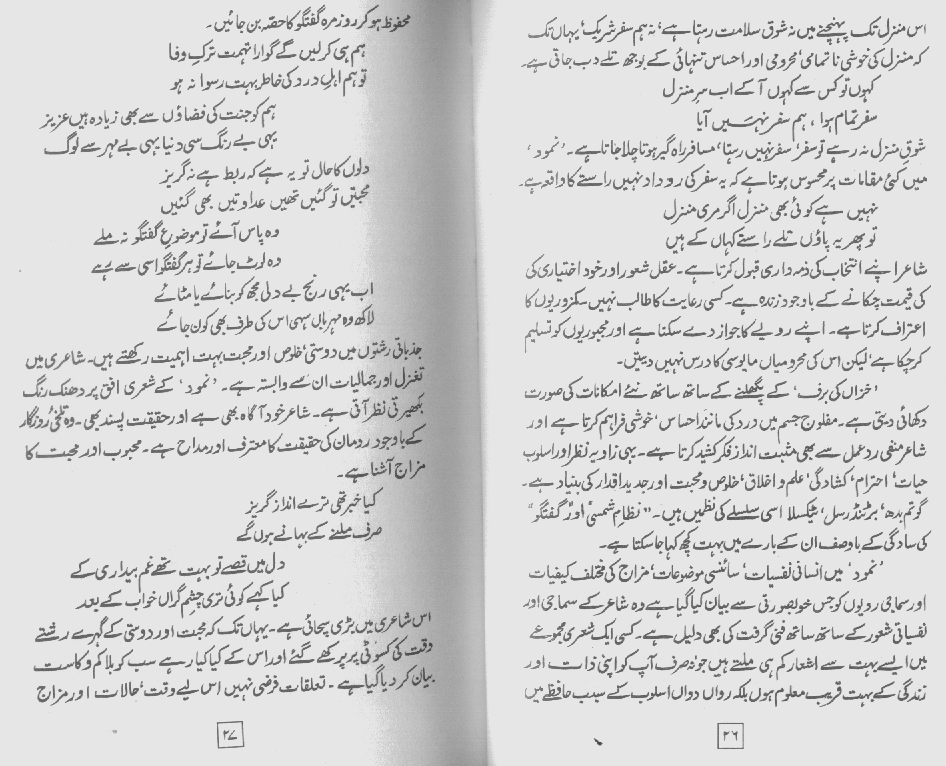 اس منزل تک پہنچنے میں نہ شوق سلامت رہتا ہے، نہ ہم سفر شریک، یہاں تک
کہ منزل کی خوشی ناتمامی، محرومی اور احساس تنہائی کے بوجھ تلے دب جاتی ہے۔
کہوں تو کس سے کہوں آ کے اب سرِ منزل
سفر تمام ہوا، ہم سفر نہیں آیا
شوقِ منزل نہ رہے تو سفر، سفر نہیں رہتا، مسافر راہ گیر ہوتا چلا جاتا ہے۔ ’نمود‘
میں کئی مقامات پر محسوس ہوتا ہے کہ یہ سفر کی روداد نہیں راستے کا واقعہ ہے۔
نہیں ہے کوئی بھی منزل اگر مری منزل
تو پھر یہ پاؤں تلے راستے کہاں کے ہیں
شاعر اپنے انتخاب کی ذمہ داری قبول کرتا ہے۔ عقل شعور اور خود اختیاری کی
کی قیمت چکانے کے باوجود زندہ ہے۔ کسی رعایت کا طالب نہیں۔ کمزوریوں کا
اعتراف کرتا ہے۔ اپنے رویے کا جواز دے سکتا ہے اور مجبوریوں کو تسلیم
کر چکا ہے، لیکن اس کی محرومیاں مایوسی کا درس نہیں دیتیں۔
’خزاں کی برف‘ کے پگھلنے کے ساتھ ساتھ نئے امکانات کی صورت
دکھائی دیتی ہے۔ مفلوج جسم میں درد کی مانند احساس، خوشی فراہم کرتا ہے اور
شاعر منفی ردعمل سے بھی مثبت انداز فکر کشید کرتا ہے۔ یہی زاویہ نظر اور اسلوب
حیات، احترام، کشادگی، علم و اخلاق، خلوص و محبت اور جدید اقدار کی بنیاد ہے۔
گوتم بدھ، برٹنڈرسل، ٹیکسلا اسی سلسلے کی نظمیں ہیں۔ ”نظامِ شمسی“ اور ”گفتگو“
کی سادگی کے باوصف ان کے بارے میں بہت کچھ کہا جا سکتا ہے۔
’نمود‘ میں انسانی نفسیات، سائنسی موضوعات، مزاج کی مختلف کیفیات
اور سماجی رویوں کو جس خوبصورتی سے بیان کیا گیا ہے وہ شاعر کے سماجی اور
نفسیاتی شعور کے ساتھ ساتھ فنی گرفت کی بھی دلیل ہے۔ کسی ایک شعری مجموعے
میں ایسے بہت سے اشعار کم ہی ملتے ہیں جو نہ صرف آپ کو اپنی ذات اور
زندگی کے بہت قریب معلوم ہوں بلکہ رواں دواں اسلوب کے سبب حافظے میں
۲۶
محفوظ ہو کر روزمرہ گفتگو کا حصہ بن جائیں۔
ہم ہی کر لیں گے گوارا تہمت ترکِ وفا
تو ہم اہلِ درد کی خاطر بہت رسوا نہ ہو
ہم کو جنت کی فضاؤں سے بھی زیادہ ہیں عزیز
یہی بے رنگ سی دنیا یہی بے مہر سے لوگ
دلوں کا حال تو یہ ہے کہ ربط ہے نہ گریز
محبتیں تو گئیں تھیں عداوتیں بھی گئیں
وہ پاس آئے تو موضوعِ گفتگو نہ ملے
وہ لوٹ جائے تو ہر گفتگو اسی سے رہے
اب یہی رنج بے دلی مجھ کو بنائے یا مٹائے
لاکھ وہ مہرباں سہی اس کی طرف بھی کون جائے
جذباتی رشتوں میں دوستی، خلوص اور محبت بہت اہمیت رکھتے ہیں۔ شاعری میں
تغزل اور جمالیات ان سے وابستہ ہے۔ ’نمود‘ کے شعری افق پر دھنک رنگ
بکھیرتی نظر آتی ہے۔ شاعر خود آگاہ بھی ہے اور حقیقت پسند بھی۔ وہ تلخیٔ روزگار
کے باوجود رومان کی حقیقت کا معترف اور مداح ہے۔ محبوب اور محبت کا
مزاج آشنا ہے۔
کیا خبر تھی ترے انداز گریز
صرف ملنے کے بہانے ہوں گے
دل میں قصے تو بہت تھے غم بیداری کے
کیا کہے کوئی تری چشمِ گراں خواب کے بعد
اس شاعری میں بڑی سچائی ہے۔ یہاں تک کہ محبت اور دوستی کے گہرے رشتے
وقت کی کسوٹی پر پرکھے گئے اور اس کے کیا کیا رہے سب کو بلا کم و کاست
بیان کر دیا گیا ہے۔ تعلقات فرضی نہیں اس لیے وقت، حالات اور مزاج
۲۷